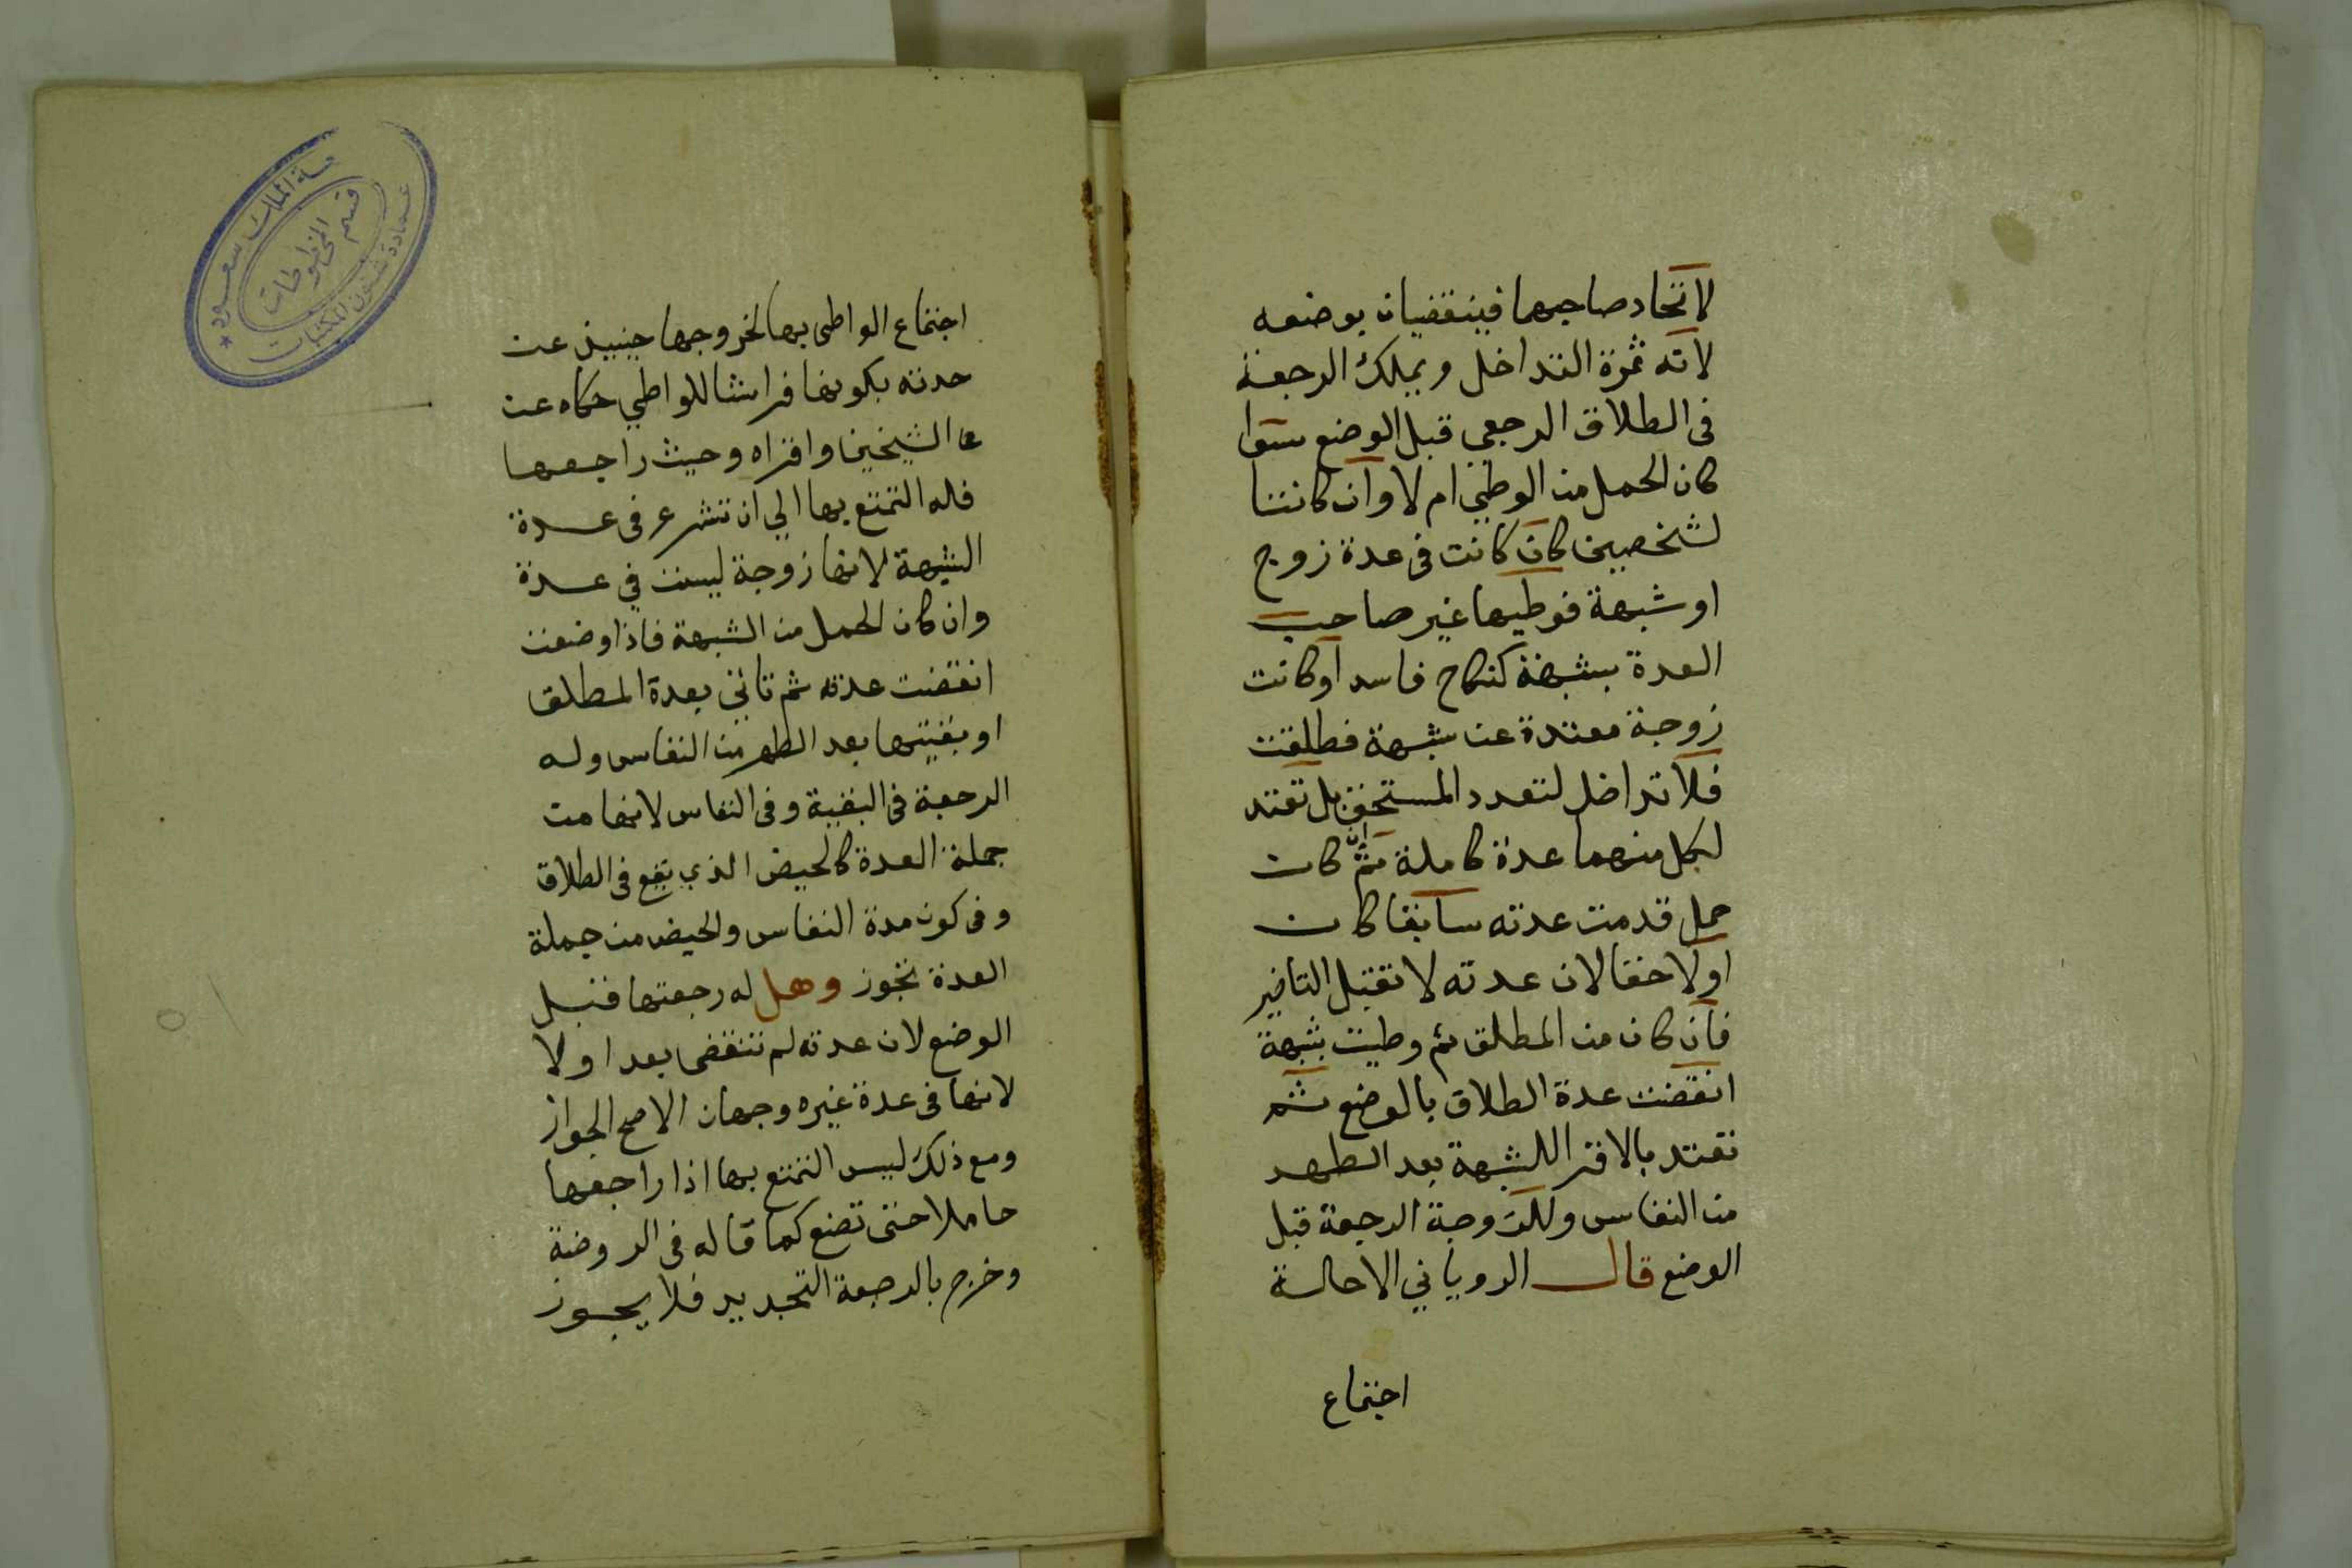 لاتحاد صاحبهما فينقضيان بوضعه
لانه ثمرة التداخل ويملك الرجعة
فى الطلاق الرجعي قبل الوضع سوا
كان الحمل من الوطئ ام لا وان كانتا
لشخصين كان كانت فى عدة زوج
او شبهة فوطيها غير صاحب
العدة بشبهة كنكاح فاسد او كانت
زوجة معتدة عن شبهة فطلقت
فلا تداخل لتعدد المستحق بل تعتد
لكل منهما عدة كاملة ثم ان كان
حمل قدمت عدته سابقا كان
او لاحقا لان عدته لا تقبل التاخير
فان كان من المطلق ثم وطيت بشبهة
انقضت عدة الطلاق بالوضع ثم
تعتد بالاقرا للشبهة بعد الطهر
من النفاس وللزوجة الرجعة قبل
الوضع قال الروياني الا حالة
اجتماع
اجتماع الواطى بها لخروجها حينيذ عن
عدته بكونها فراشا للواطي حكاه عن
عا الشيخين واقراه وحيث راجعها
فله التمتع بها الي ان تشرع فى عدة
الشبهة لانها زوجة ليست في عدة
وان كان الحمل من الشبهة فاذا وضعت
انقضت عدته ثم تاتي بعدة المطلق
او بقيتها بعد الطهر من النفاس وله
الرجعة فى البقية وفى النفاس لانها من
جملة العدة كالحيض الذي يقع فى الطلاق
وفى كون مدة النفاس والحيض من جملة
العدة تجوز وهل له رجعتها قبل
الوضع لان عدته لم تنقضى بعد او لا
لانها فى عدة غيره وجهان الاصح الجواز
ومع ذلك ليس التمتع بها اذا راجعها
حاملا حتى تضع كما قاله فى الروضة
وخرج بالرجعة التجديد فلا يجوز
جامعة الملك سعود
عمادة شئون المكتبات
قسم المخطوطات